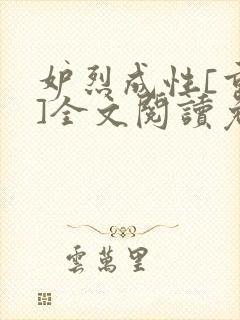 妒烈成性[重
]全文閱讀
雲萬里